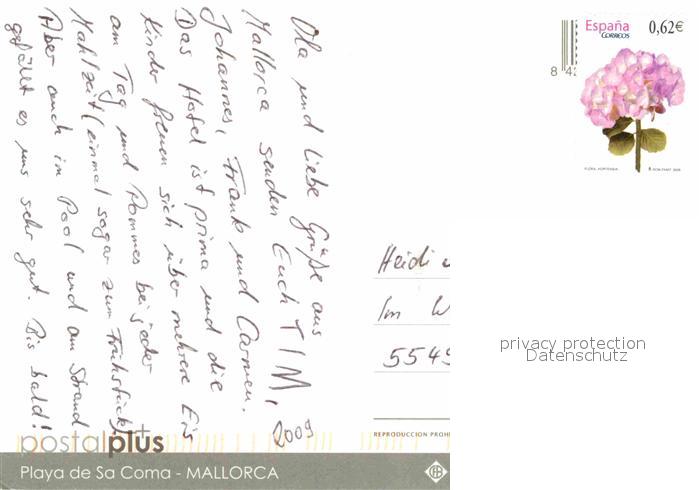 Ola und liebe Grüße aus
Mallorca senden Euch TIM,
Johannes, Frank und Carmen.
Das Hotel ist prima und die
Kinder freuen sich über mehrere Eis
am Tag und Pommes bei jeder
Mahlzeit (einmal sogar zum Frühstück)
Aber auch im Pool und am Strand
gefällt es uns sehr gut. Bis bald!
2009
España
CORREOS
0,62€
8 42
FLORA. HORTENSIA
Heidi
Im W
5549
privacy protection
Datenschutz
REPRODUCCION PROHI
postalplus
Playa de Sa Coma - MALLORCA